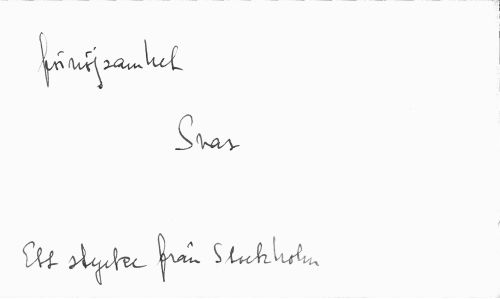 förnöjsamhet
Svar
Ett stycke från Stockholm